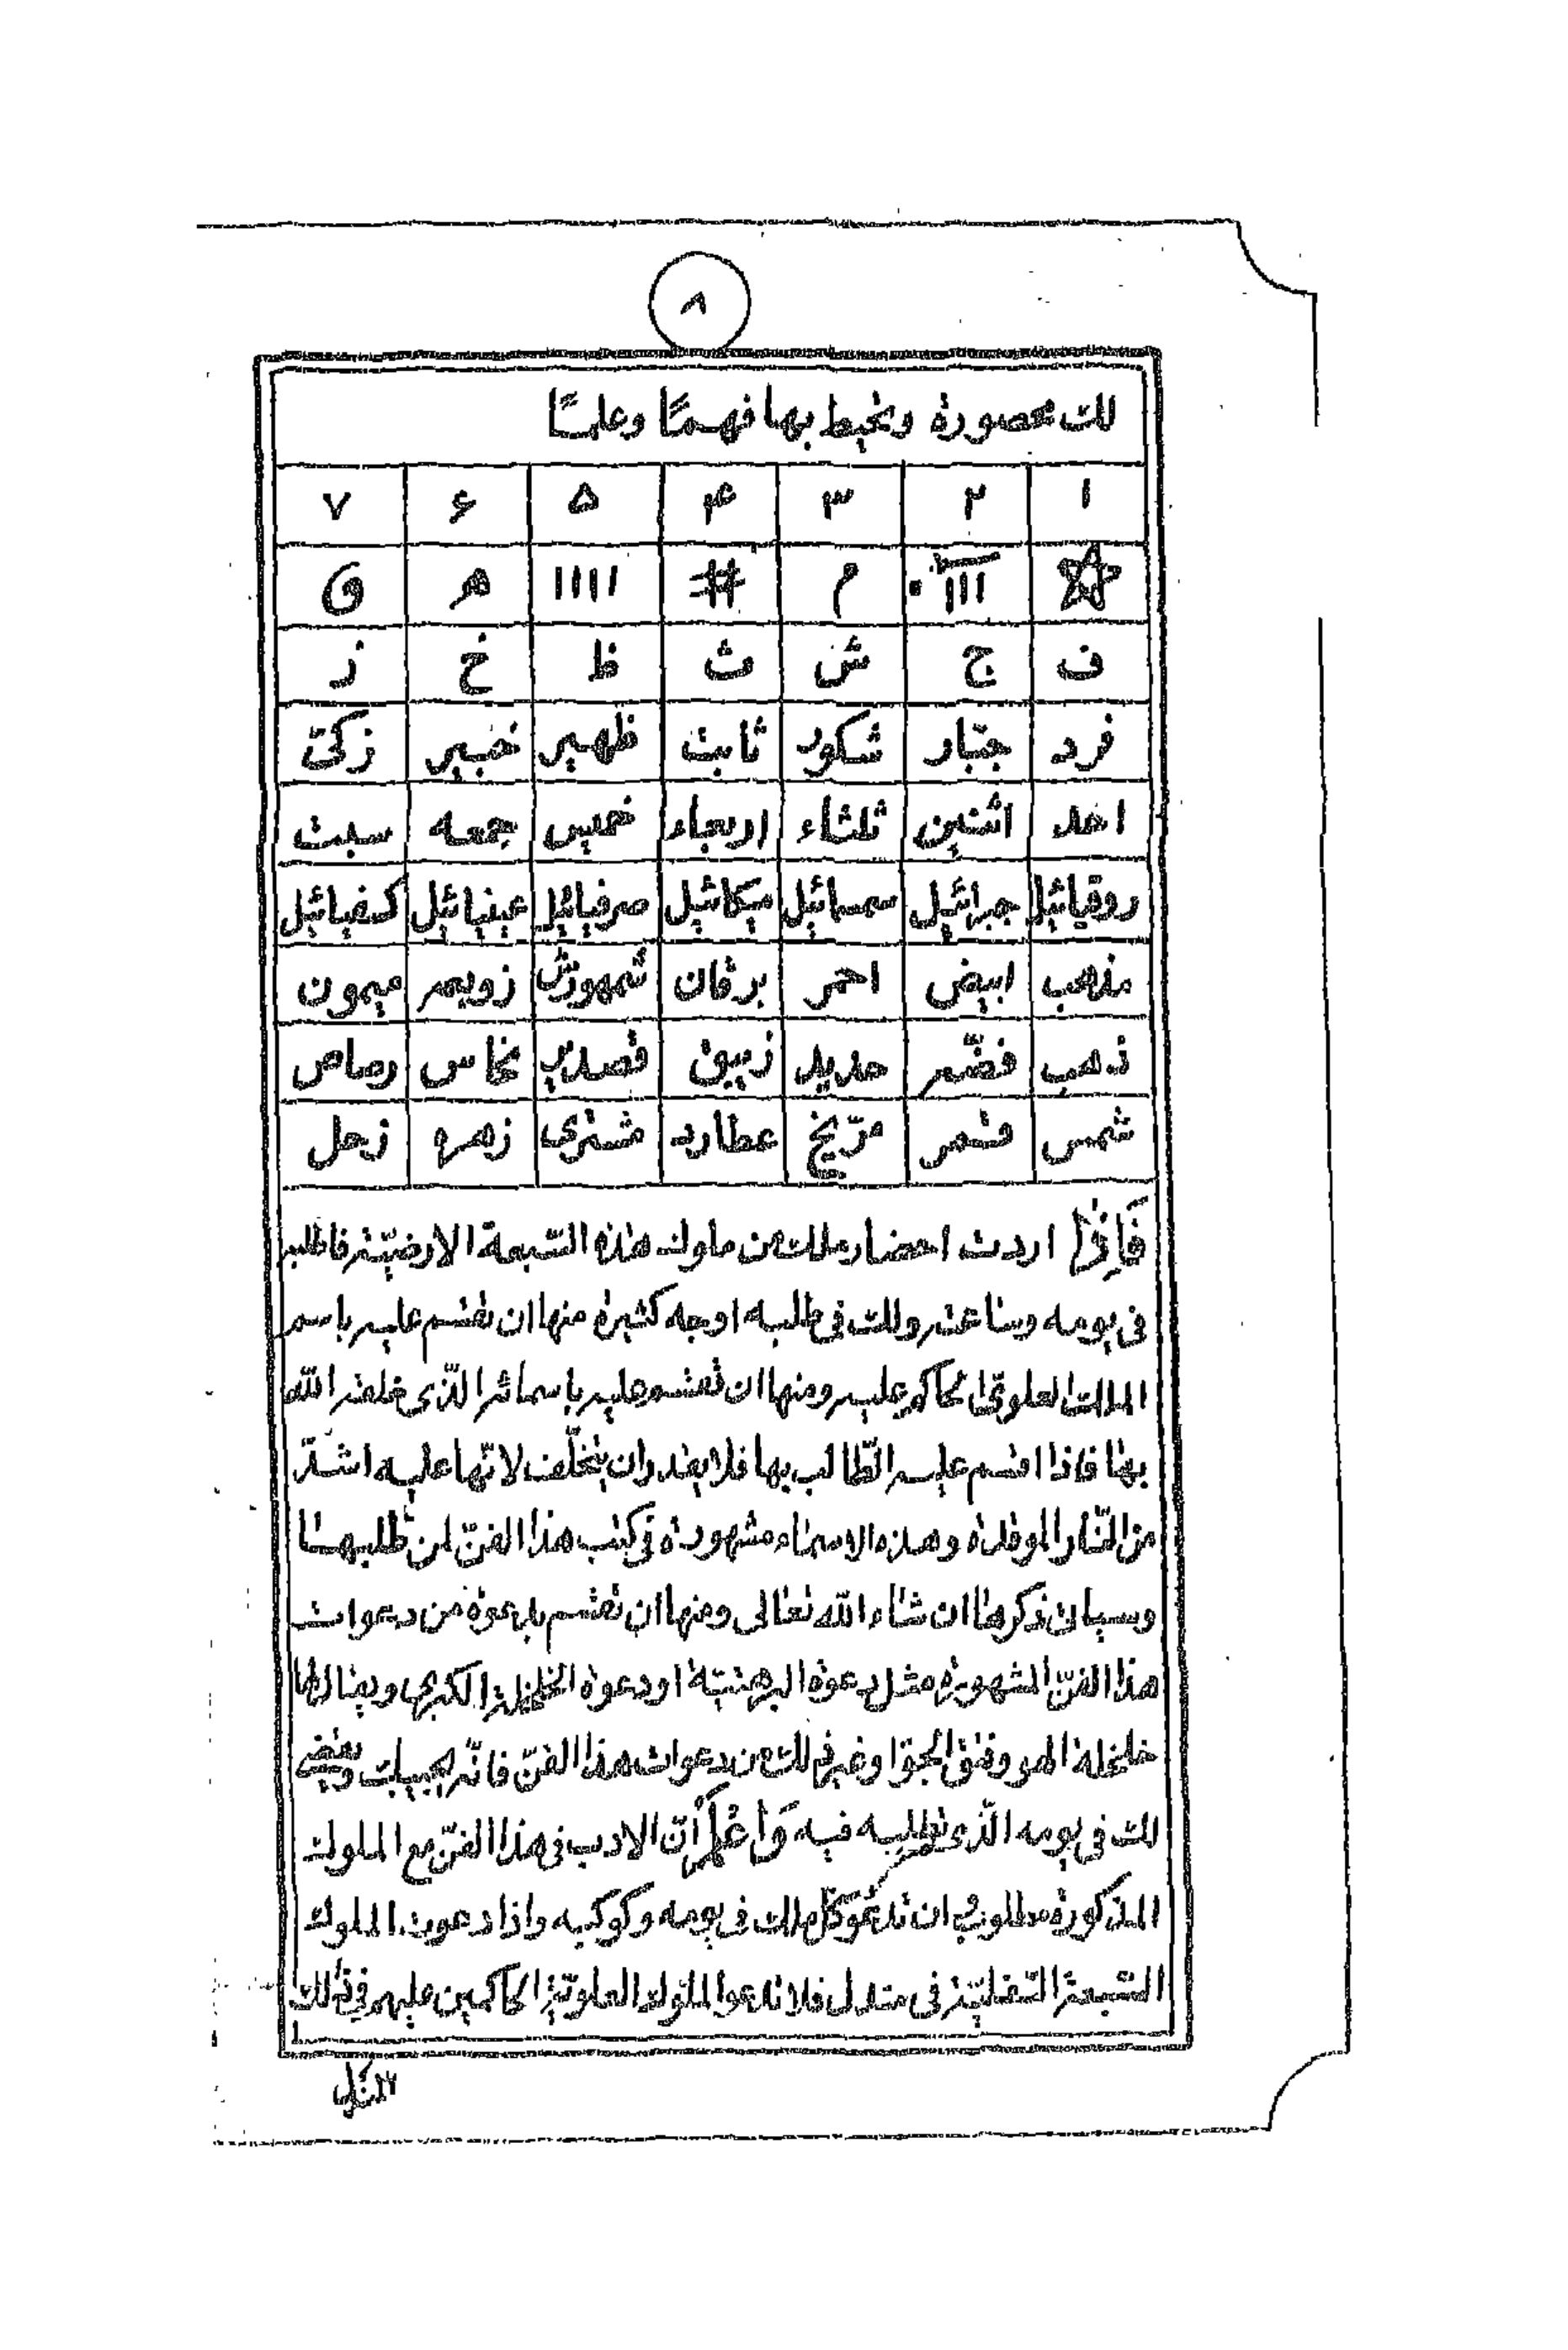 ٨
لك محصورة وتحيط بها فهمًا وعلمًا
١ ٢ ٣ ۴ ۵ ۶ ٧
م # ١١١١ ھ
ف ج ش ث ظ خ ز
فرد جبّار شكور ثابت ظهير خبير زكىّ
احد اثنين ثلثاء اربعاء خميس جمعه سبت
روقيائيل جبرائيل سمسمائيل ميكائيل صرفيائيل عينيائيل كسفيائيل
مذهب ابيض احمر برقان شمهورش زوبعه ميمون
ذهب فضّه حديد زيبق قصدير نحاس رصاص
شمس قمر مرّيخ عطارد مشترى زهره زحل
فَاِذَا اردت احضار ملك من ملوك هذه السّبعة الارضيّة فاطلبه
فى يومه وساعته ولك فى طلبه اوجه كثيرة منها ان تقسم عليه باسم
الملك العلوىّ الحاكم عليه ومنها ان تقسم عليه باسمائه الّذى خلقه اللّه
بها فاذا اقسم عليه الطّالب بها فلا يقدر ان يتخلّف لانّها عليه اشدّ
من النّار الموقدة وهذه الاسماء مشهورة فى كتب هذا الفنّ لمن طلبها
وسيأتى ذكرها ان شاء اللّه تعالى ومنها ان تقسم بدعوة من دعوات
هذا الفنّ المشهورة مثل دعوة البرهتية او دعوة الخلخلة الكبرى ويقال لها
خلخلة الهو وفتق الجوّ او غير ذلك من دعوات هذا الفنّ فانّه يجيبك ويقضى
لك فى يومه الّذى تطلبه فيه وَاعْلَمْ أنّ الادب فى هذا الفنّ مع الملوك
المذكورة مطلوب ان تدعو كلّ ملك فى يومه وكوكبه واذا دعوت الملوك
السّبعة السّفليّة فى مندل فلا تدعو الملوك العلويّة الحاكمين عليهم فى ذلك